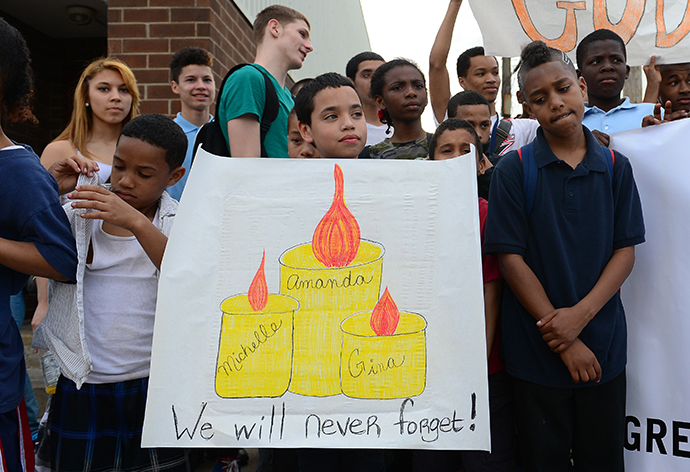 GOD
Amanda
Michelle
Gina
We will never forget!
GRE